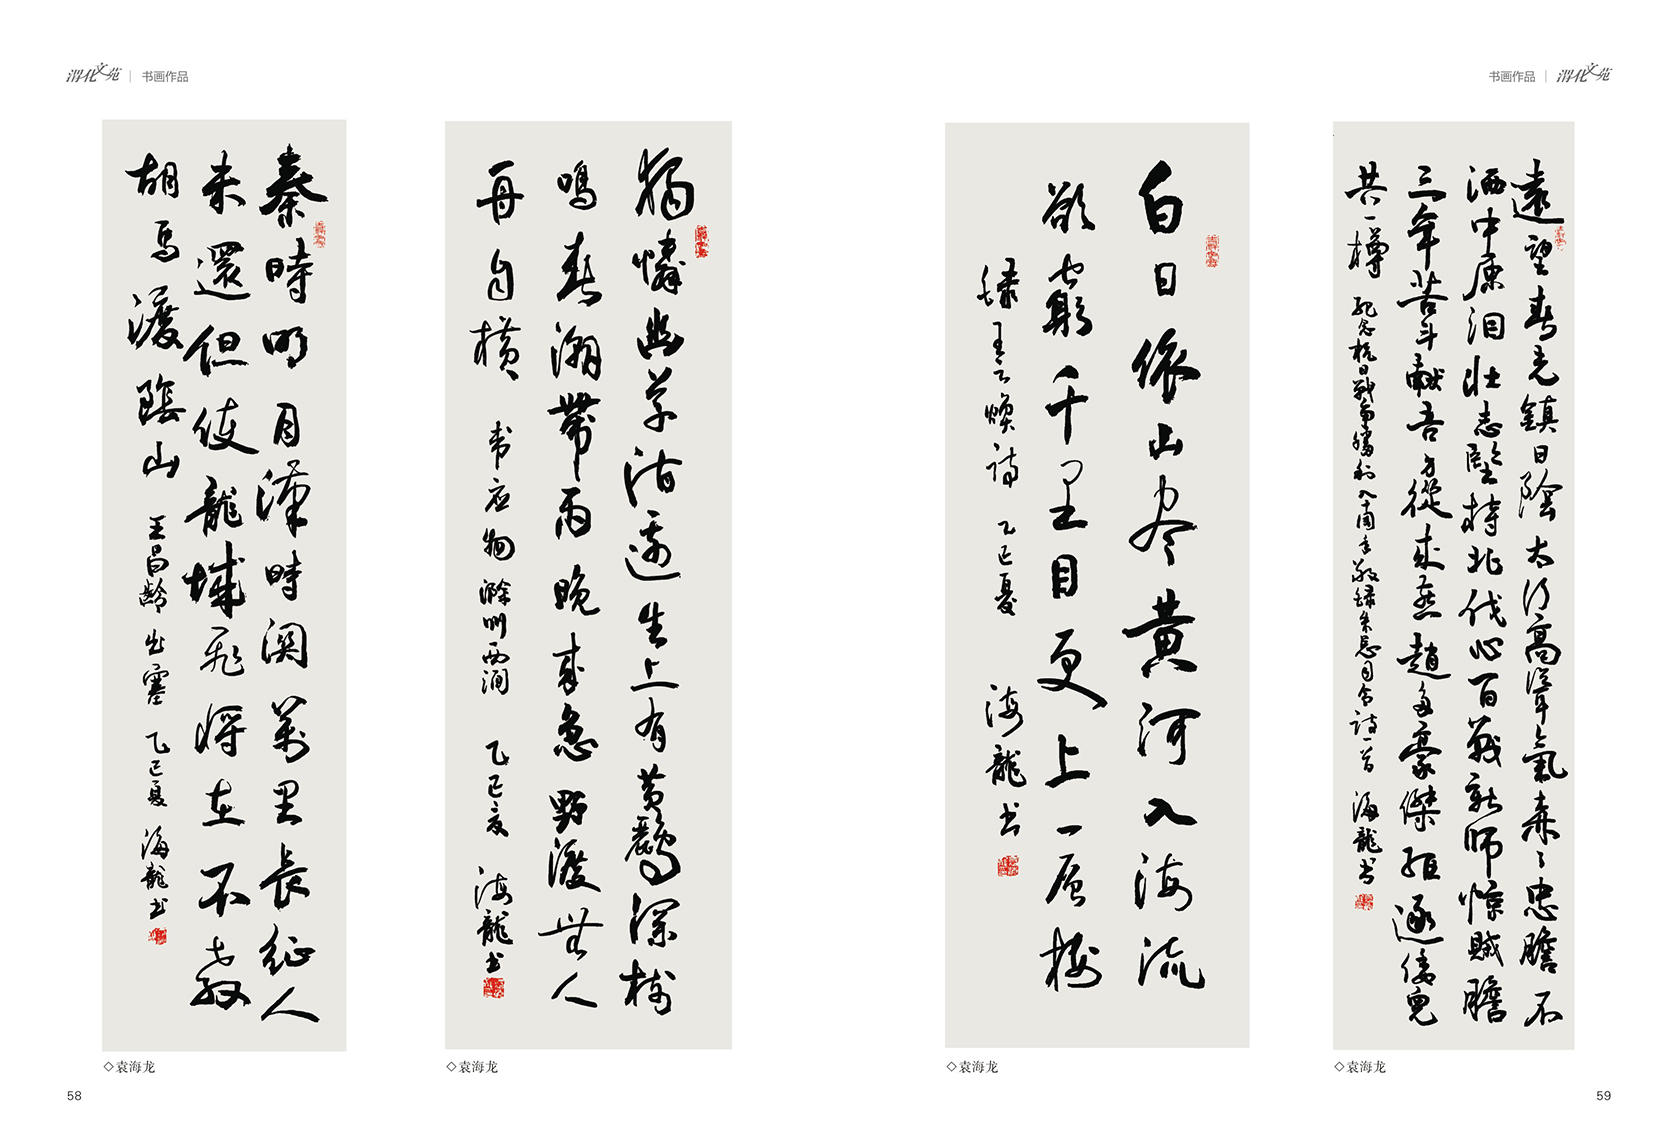 渭化文苑 | 书画作品
秦時明月漢時関萬里長征人
未還但使龍城飛将在不教
胡馬渡陰山 王昌齡 出塞 乙巳夏 海龍书
◇袁海龙
58
獨憐幽草澗邊生上有黄鸝深樹
鳴春潮帶雨晚来急野渡無人
舟自横 韦应物 滁州西涧 乙巳夏 海龍书
◇袁海龙
书画作品 | 渭化文苑
白日依山尽黄河入海流
欲窮千里目更上一层楼
録王之焕诗 乙巳夏 海龍书
◇袁海龙
遠望春光鎮日陰太行高聳氣森々忠膽不
洒中原泪壮志堅持北伐心百戰新師惊賊膽
三年苦斗獻吾身從来燕趙多豪傑驅逐倭兒
共一樽 纪念抗日戰争勝利八十周年敬録朱总司令詩一首 海龍书
◇袁海龙
59